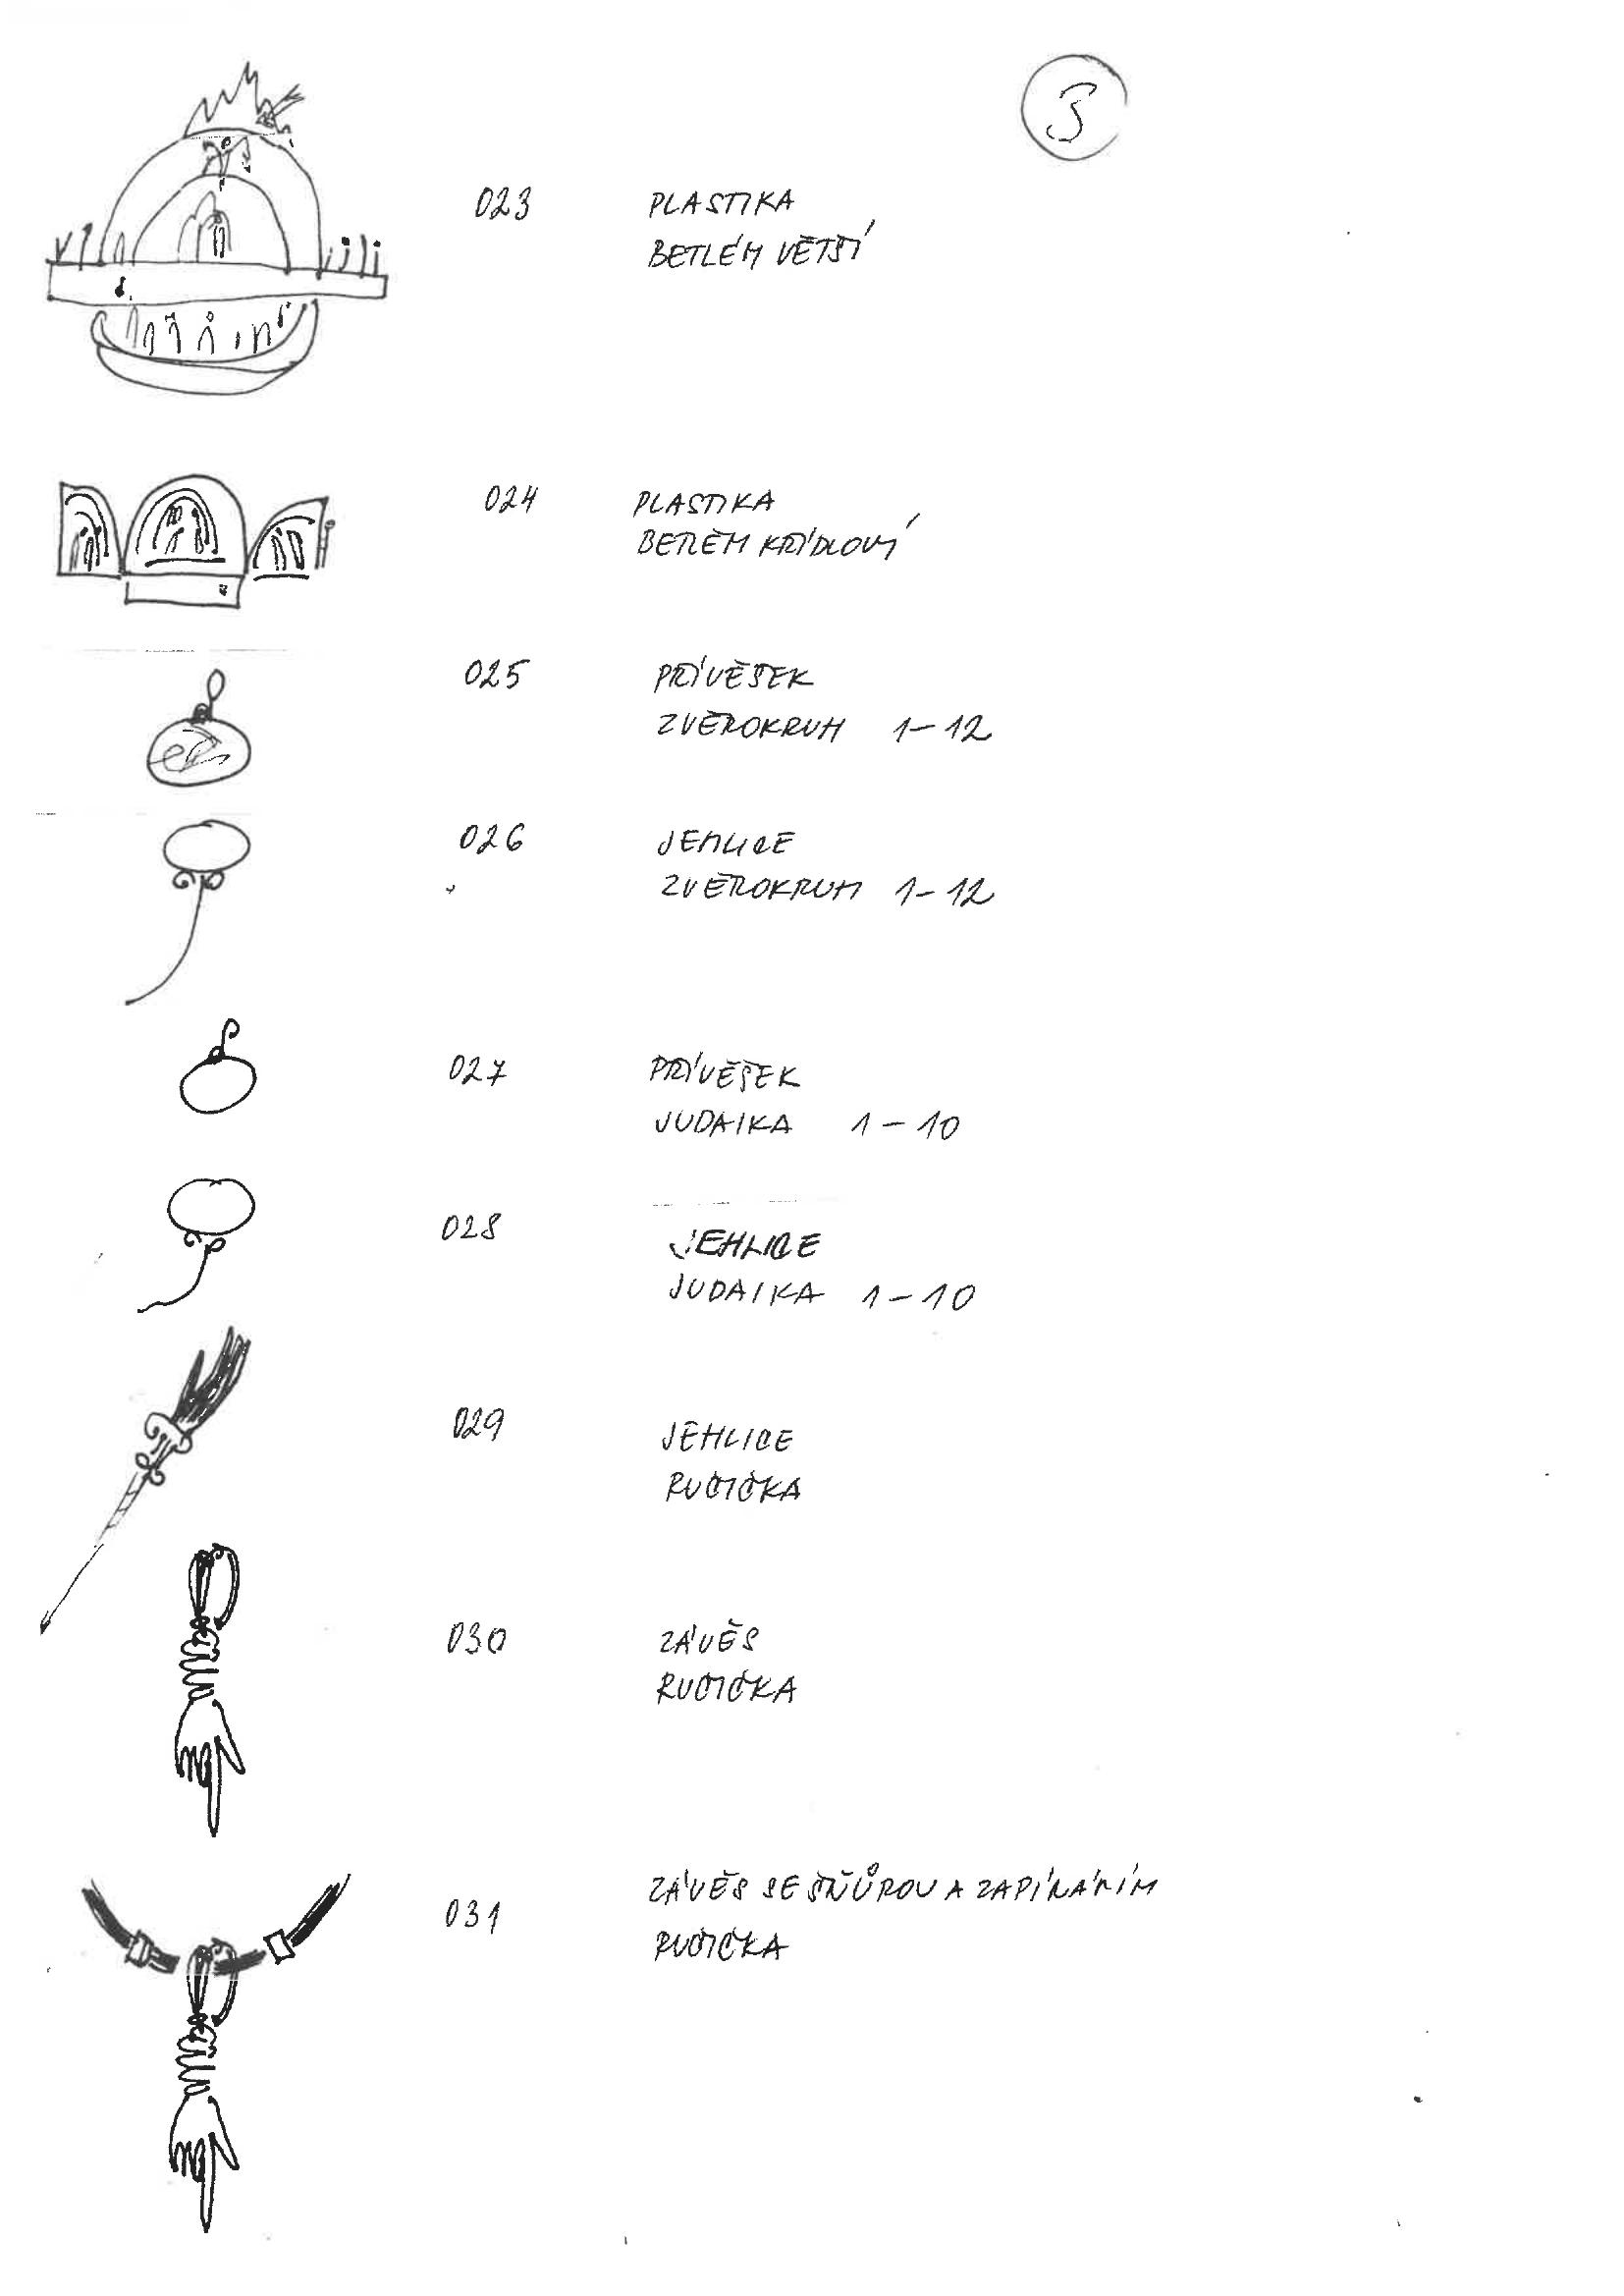 3
023 PLASTIKA
BETLÉM VĚTŠÍ
024 PLASTIKA
BETLÉM KŘÍDLOVÝ
025 PŘÍVĚŠEK
ZVĚROKRUH 1-12
026 JEHLICE
ZVĚROKRUH 1-12
027 PŘÍVĚŠEK
JUDAIKA 1-10
028 JEHLICE
JUDAIKA 1-10
029 JEHLICE
RUČIČKA
030 ZÁVĚS
RUČIČKA
031 ZÁVĚS SE ŠŇŮROU A ZAPÍNÁNÍM
RUČIČKA